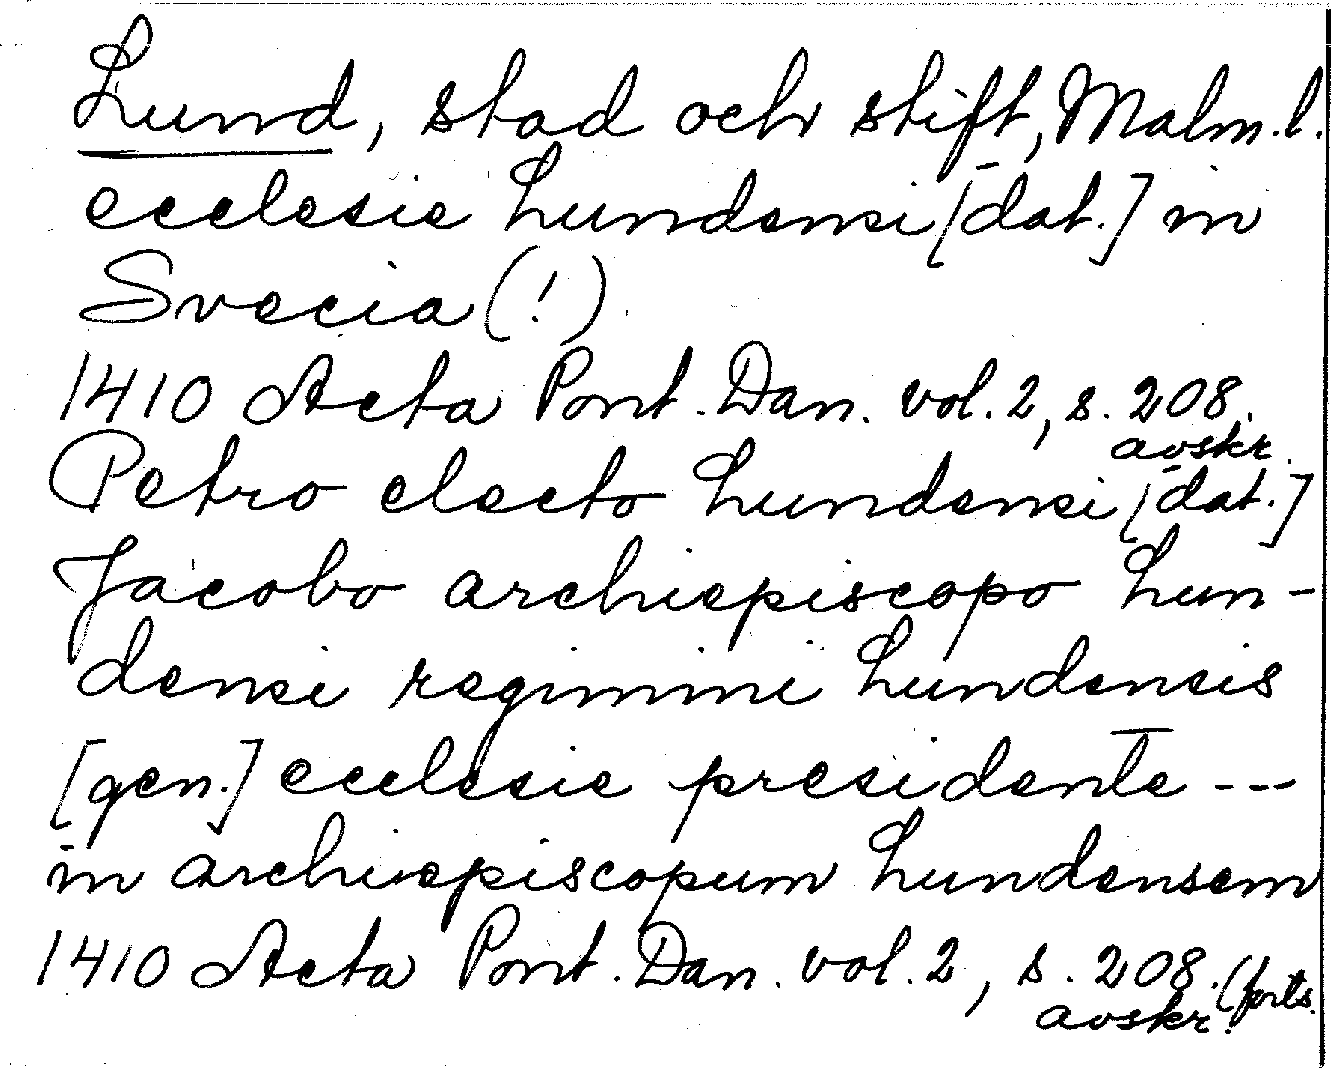 Lund, stad och stift, Malm. l.
ecclesie Lundensi [dat.] in
Svecia (!)
1410 Acta Pont. Dan. vol. 2, s. 208.
avskr.
Petro electo Lundensi [dat.]
Jacobo archiepiscopo Lun-
densi regimini Lundensis
[gen.] ecclesie presidente ---
in archiepiscopum Lundensem
1410 Acta Pont. Dan. vol. 2, s. 208. (forts.
avskr.